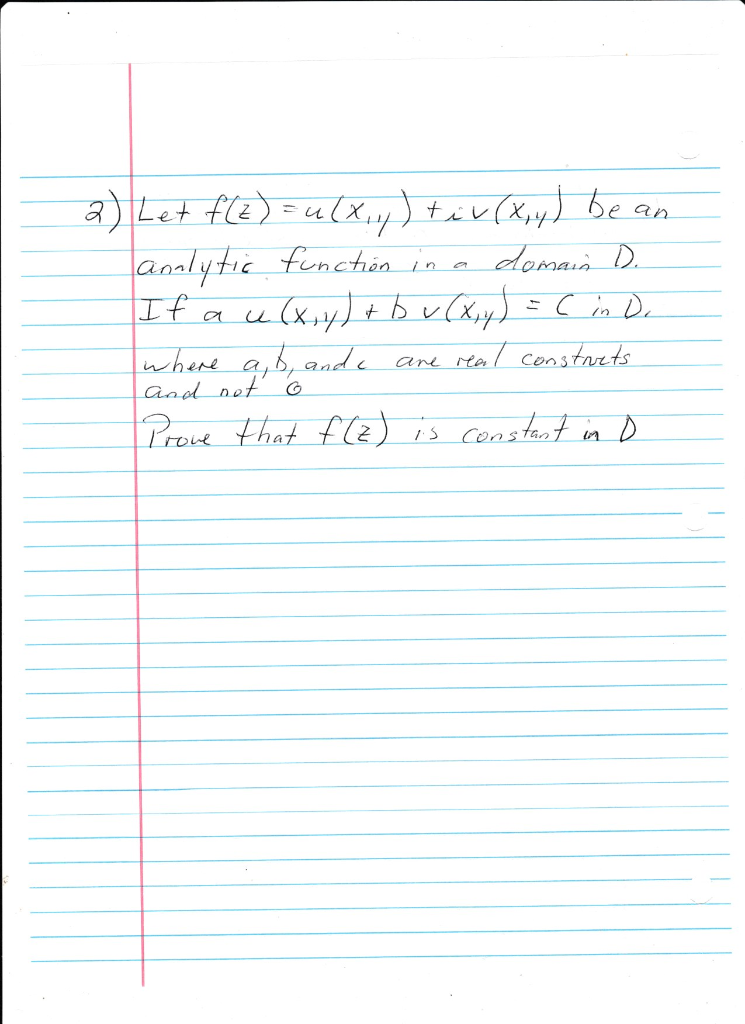 2) Let f(z) = u(x,y) + iv(x,y) be an
analytic function in a domain D.
If a u(x,y) + b v(x,y) = C in D.
where a, b, and c are real constnts
and not 0
Prove that f(z) is constant in D